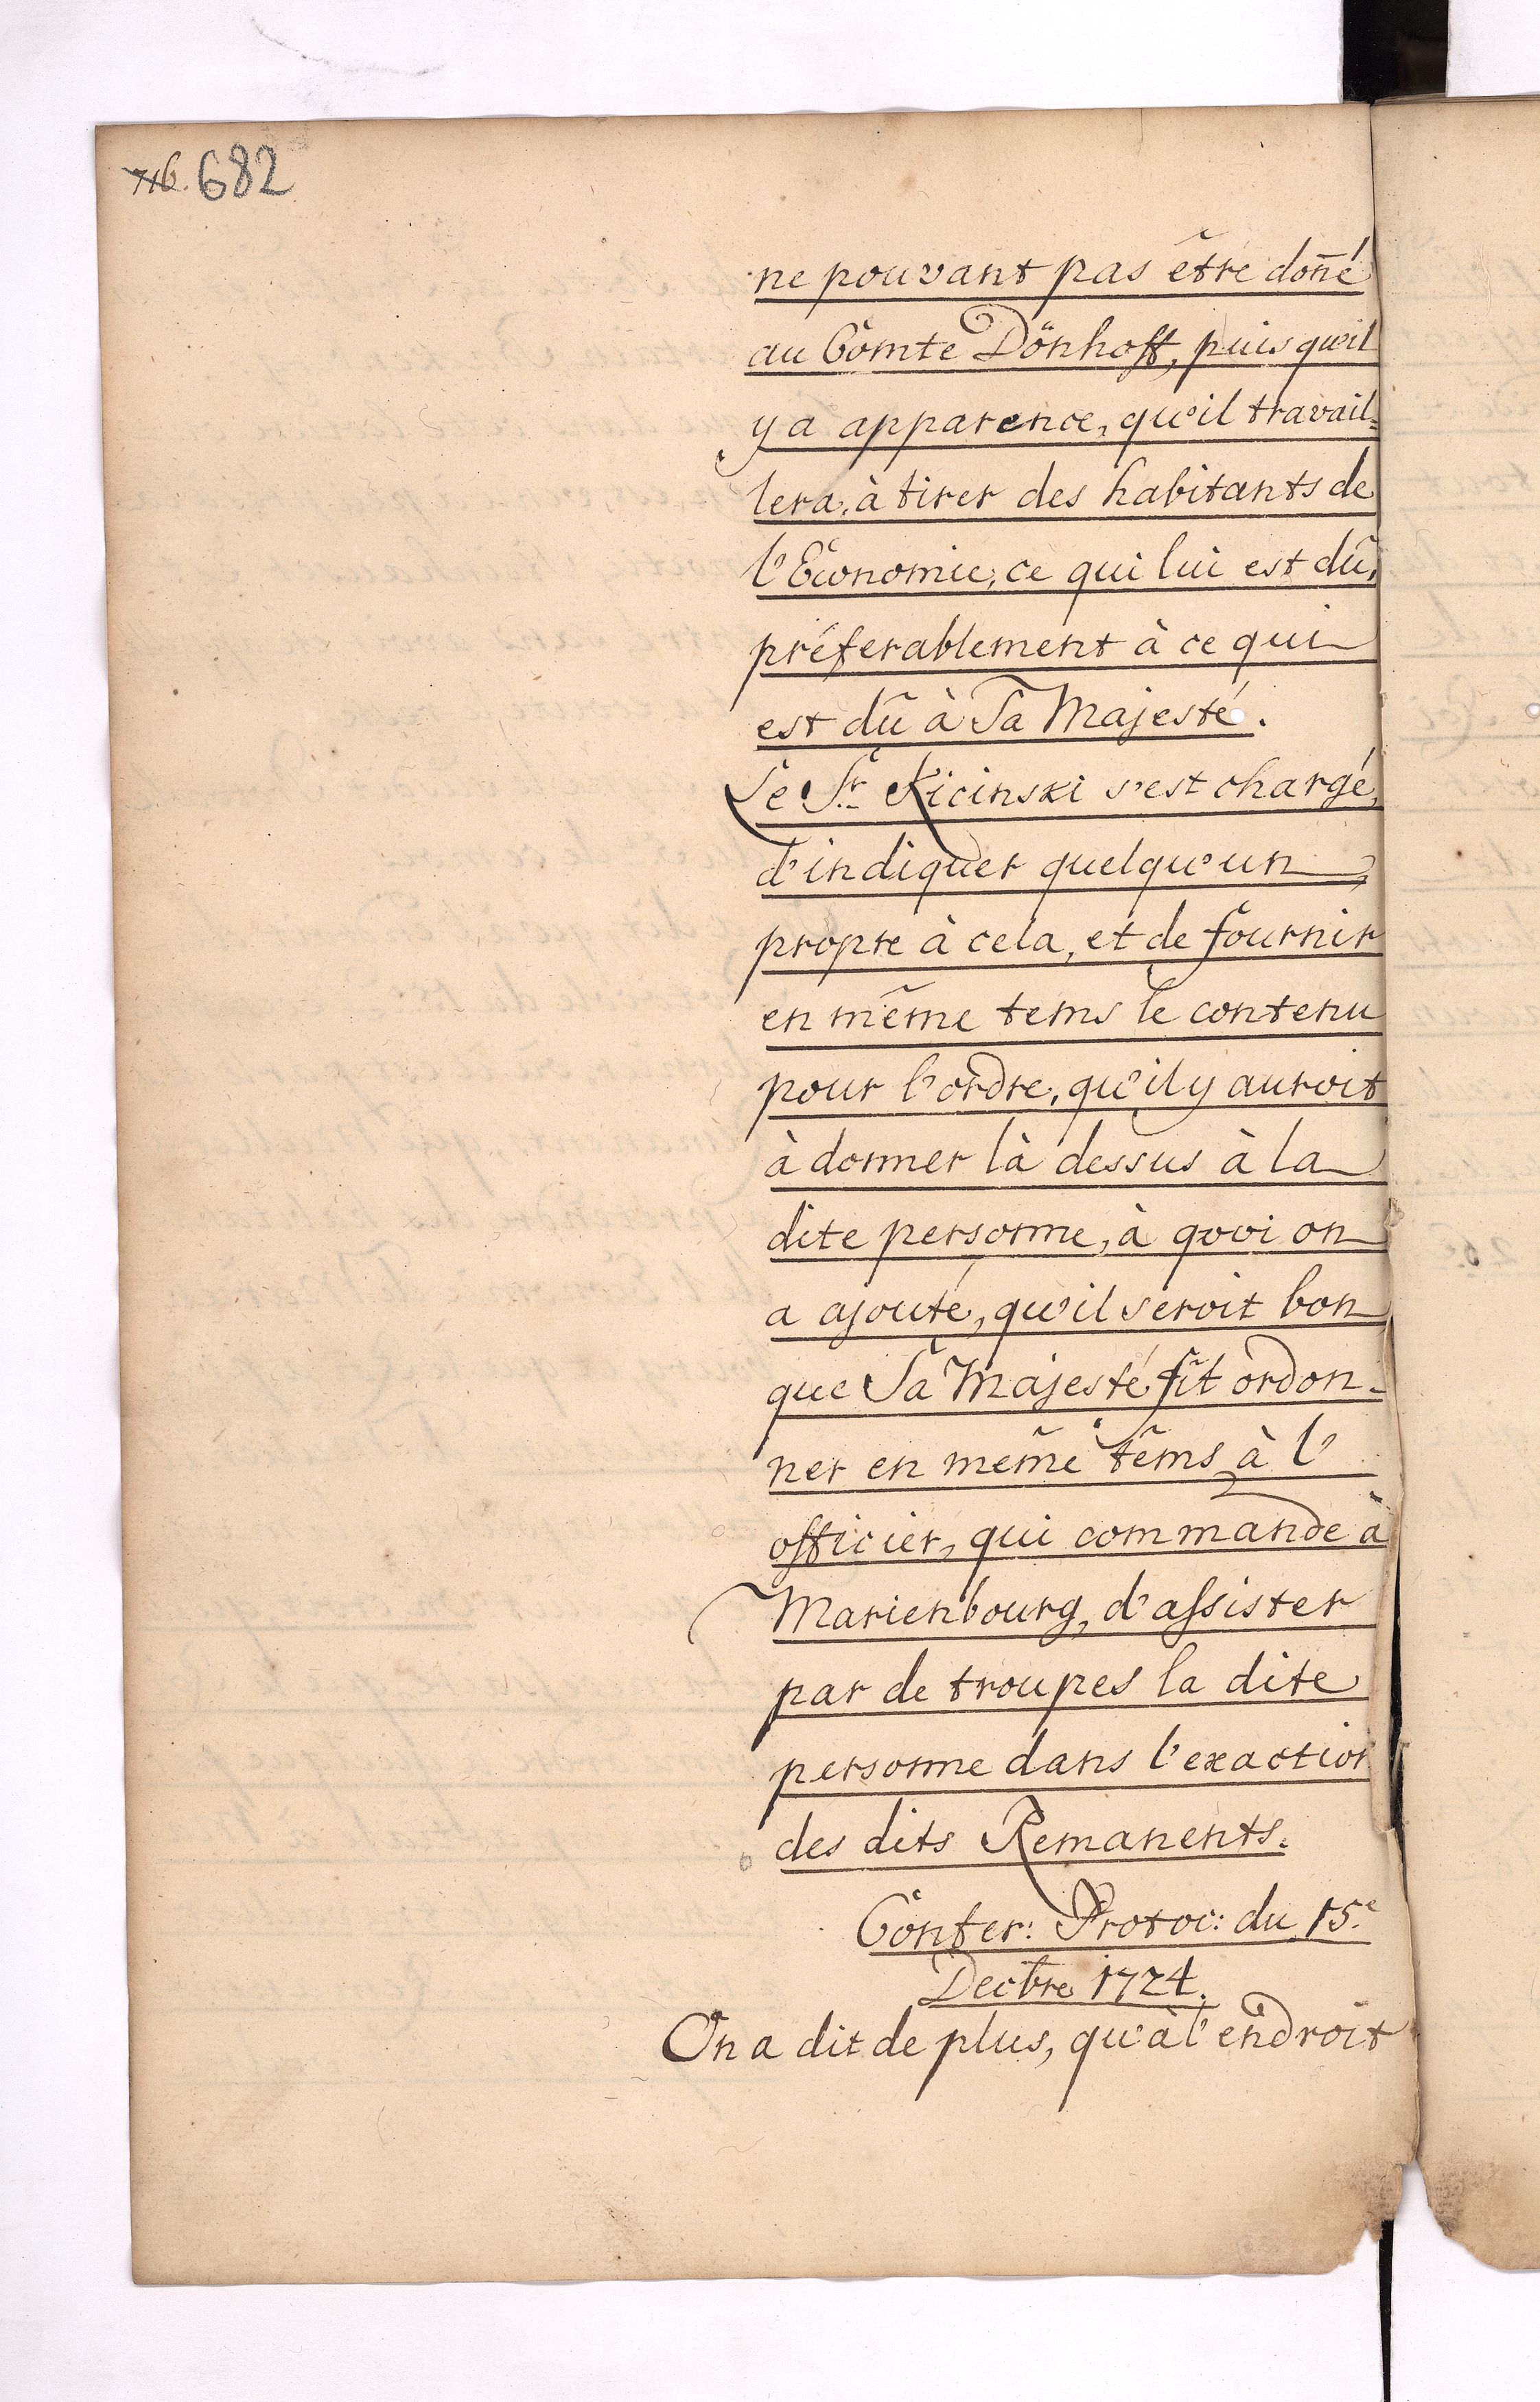 716. 682
ne pouvant pas être don̄é
au Comte Dönhoff, puis qu'il
y a apparence, qu'il travail=
lera, à tirer des habitants de
l'Economie, ce qui lui est dû,
préferablement à ce qui
est dû à Sa Majesté.
Le Sr. Kicinski s'est chargé,
d'indiquer quelqu'un,
propre à cela, et de fournir
en même tems le contenu
pour l'ordre, qu'il y auroit
à donner là dessus à la
dite personne, à quoi on
a ajouté, qu'il seroit bon
que Sa Majesté fit ordon-
ner en même têms à l'
officier, qui commande à
Marienbourg, d'assister
par de troupes la dite
personne dans l'exaction
des dits Remanents.
Confer: Protoc: du 15.e
Decbre 1724.
On a dit de plus, qu'à l'endroit